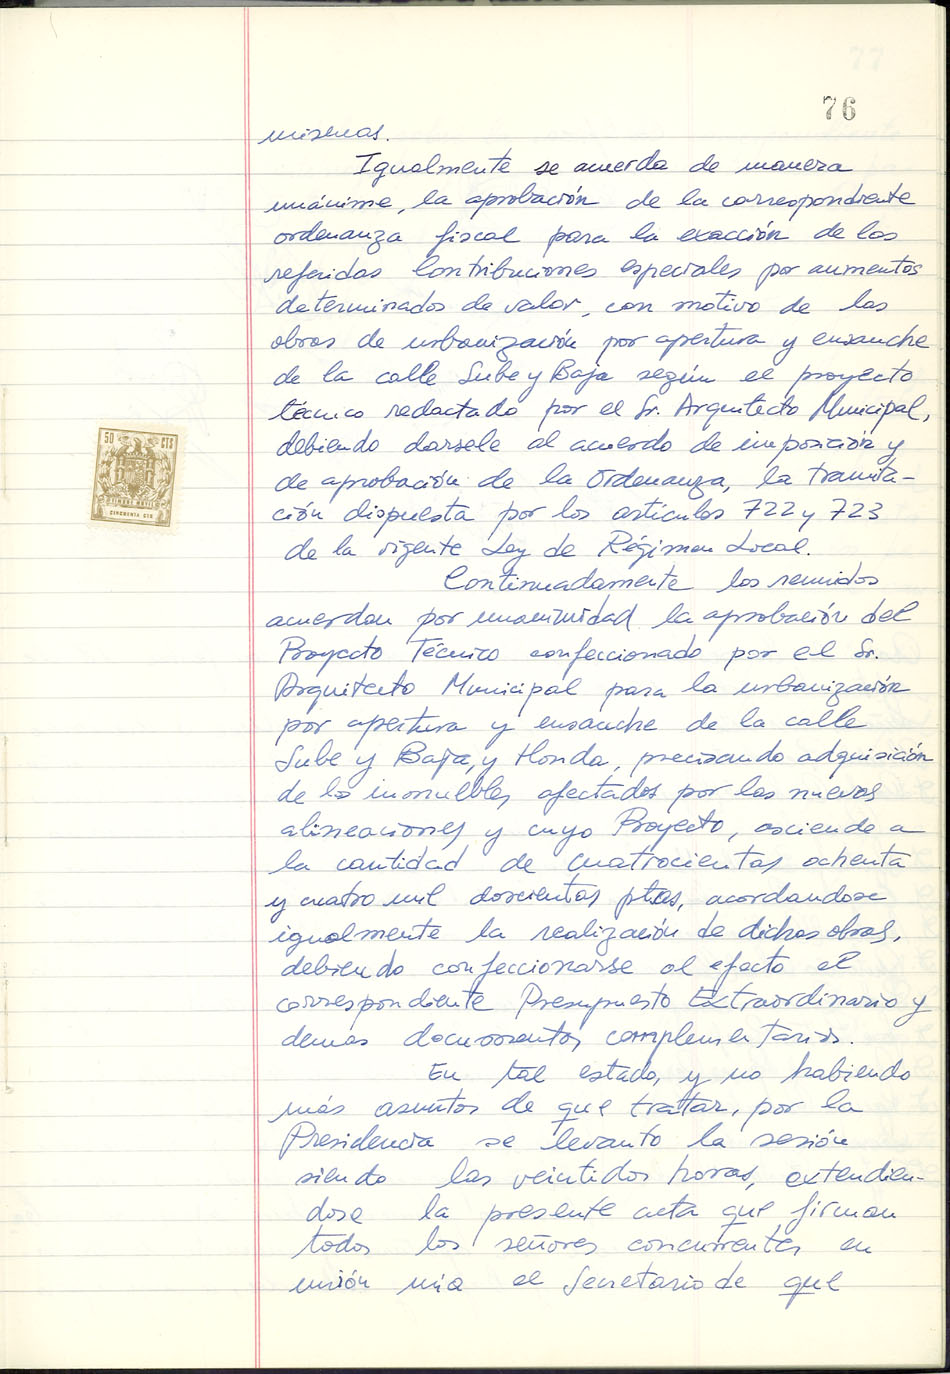 76
mismas.
Igualmente se acuerda de manera
unánime, la aprobación de la correspondiente
ordenanza fiscal para la exacción de las
referidas Contribuciones especiales por aumentos
determinados de valor, con motivo de las
obras de urbanización por apertura y ensanche
de la calle Sube y Baja según el proyecto
técnico redactado por el Sr. Arquitecto Municipal,
debiendo darsele al acuerdo de imposición y
de aprobación de la Ordenanza, la tramita-
ción dispuesta por los artículos 722 y 723
de la vigente Ley de Régimen Local.
Continuadamente los reunidos
acuerdan por unanimidad la aprobación del
Proyecto Técnico confeccionado por el Sr.
Arquitecto Municipal para la urbanización
por apertura y ensanche de la calle
Sube y Baja, y Honda, precisando adquisición
de los inmuebles afectados por las nuevas
alineaciones y cuyo Proyecto, asciende a
la cantidad de cuatrocientas ochenta
y cuatro mil doscientas ptas, acordandose
igualmente la realización de dichas obras,
debiendo confeccionarse al efecto el
correspondiente Presupuesto Extraordinario y
demás documentos complementarios.
En tal estado, y no habiendo
más asuntos de que tratar, por la
Presidencia se levanto la sesión
siendo las veintidos horas, extendien-
dose la presente acta que firman
todos los señores concurrentes en
unión mia el Secretario de que
50 CTS
CINCUENTA CTS